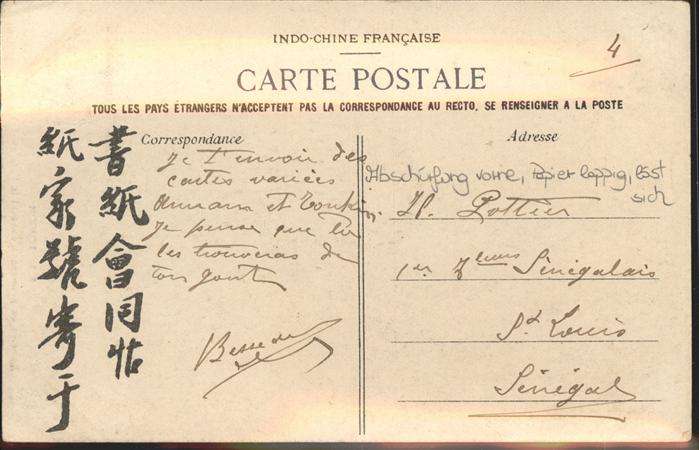 INDO-CHINE FRANÇAISE
4
CARTE POSTALE
TOUS LES PAYS ÉTRANGERS N'ACCEPTENT PAS LA CORRESPONDANCE AU RECTO, SE RENSEIGNER A LA POSTE
Correspondance
Je t'envoie des
cartes variées
Annam et Tonkin.
Je pense que tu
les trouveras de
ton goût
Adresse
Abschürfung vorne, Papier lappig, löst
sich
Pottier
1er Sénégalais
St Louis
Sénégal
書紙會同帖
紙家號寄于